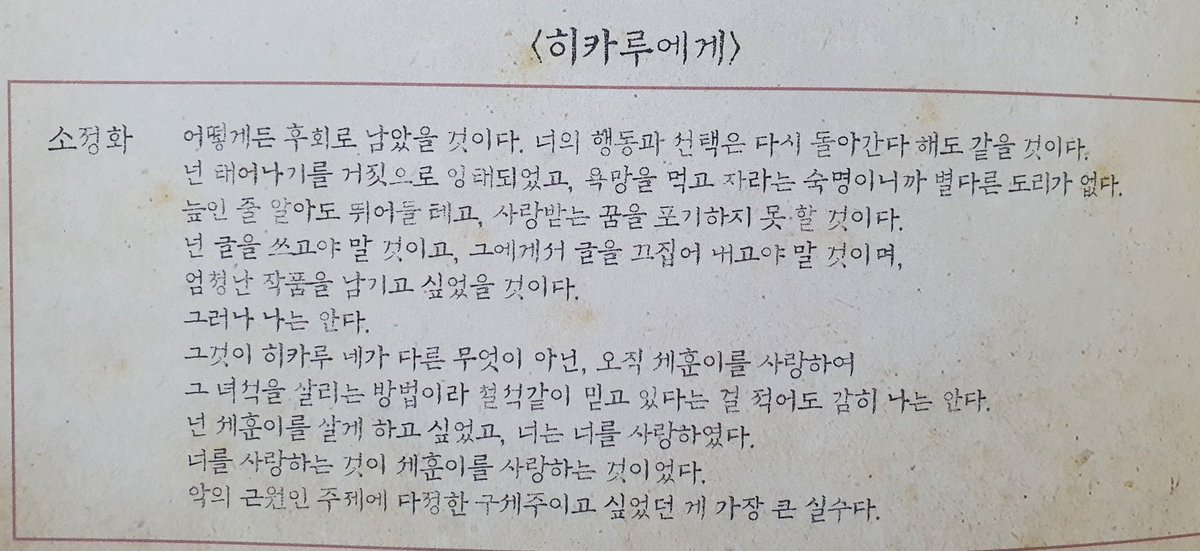 <히카루에게>
소정화 어떻게든 후회로 남았을 것이다. 너의 행동과 선택은 다시 돌아간다 해도 같을 것이다.
넌 태어나기를 거짓으로 잉태되었고, 욕망을 먹고 자라는 숙명이니까 별다른 도리가 없다.
늪인 줄 알아도 뛰어들 테고, 사랑받는 꿈을 포기하지 못 할 것이다.
넌 글을 쓰고야 말 것이고, 그에게서 글을 끄집어 내고야 말 것이며,
엄청난 작품을 남기고 싶었을 것이다.
그러나 나는 안다.
그것이 히카루 네가 다른 무엇이 아닌, 오직 세훈이를 사랑하여
그 녀석을 살리는 방법이라 철석같이 믿고 있다는 걸 적어도 감히 나는 안다.
넌 세훈이를 살게 하고 싶었고, 너는 너를 사랑하였다.
너를 사랑하는 것이 세훈이를 사랑하는 것이었다.
악의 근원인 주제에 다정한 구세주이고 싶었던 게 가장 큰 실수다.